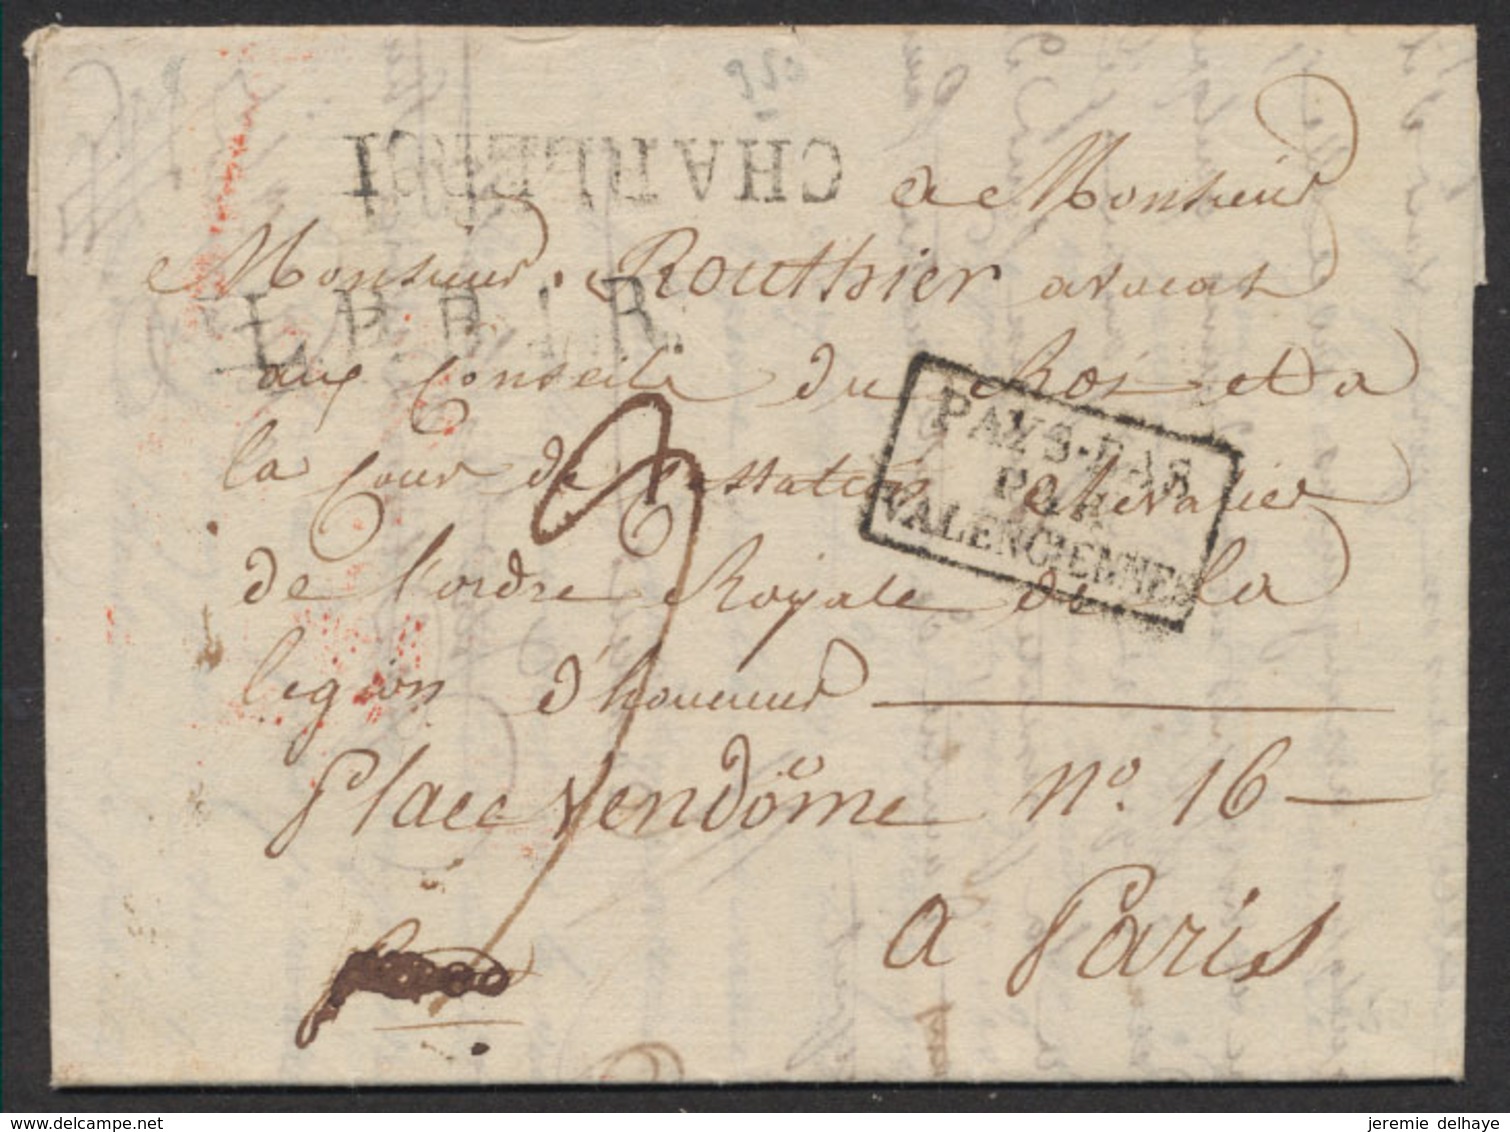 CHARLEROI
a Monsieur
Monsieur Routhier avocat
L.P.B.1.R
aux Conseils du Roi et a
PAYS-BAS
PAR
VALENCIENNES
la Cour de Cassation Chevalier
de l'ordre Royale de la
legion d'honneur
Place Vendôme n° 16
a Paris
delcampe.net
jeremie delhaye